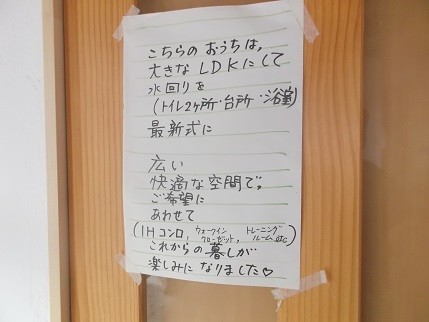 こちらの おうちは、
大きな LDKにして
水回りを
(トイレ2ヶ所・台所・浴室)
最新式に
広い
快適な空間で。
ご希望に
あわせて
(IHコンロ, ウォークイン クローゼット, トレーニング ルーム etc)
これからの暮しが
楽しみになりました♡